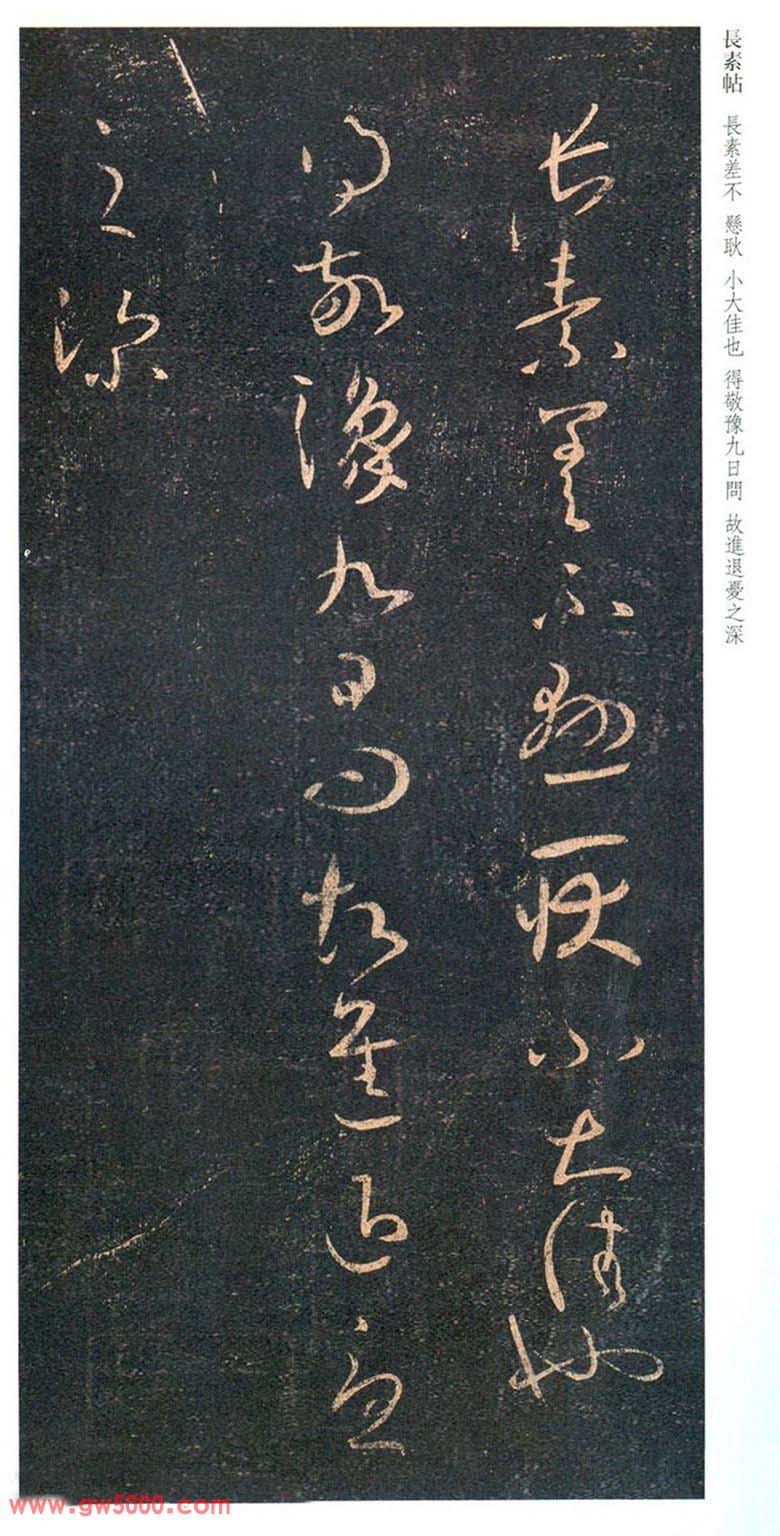 長素帖 長素差不 懸耿 小大佳也 得敬豫九日問 故進退憂之深
長素差不懸耿小大佳也
得敬豫九日問故進退憂
之深
www.gw5000.com